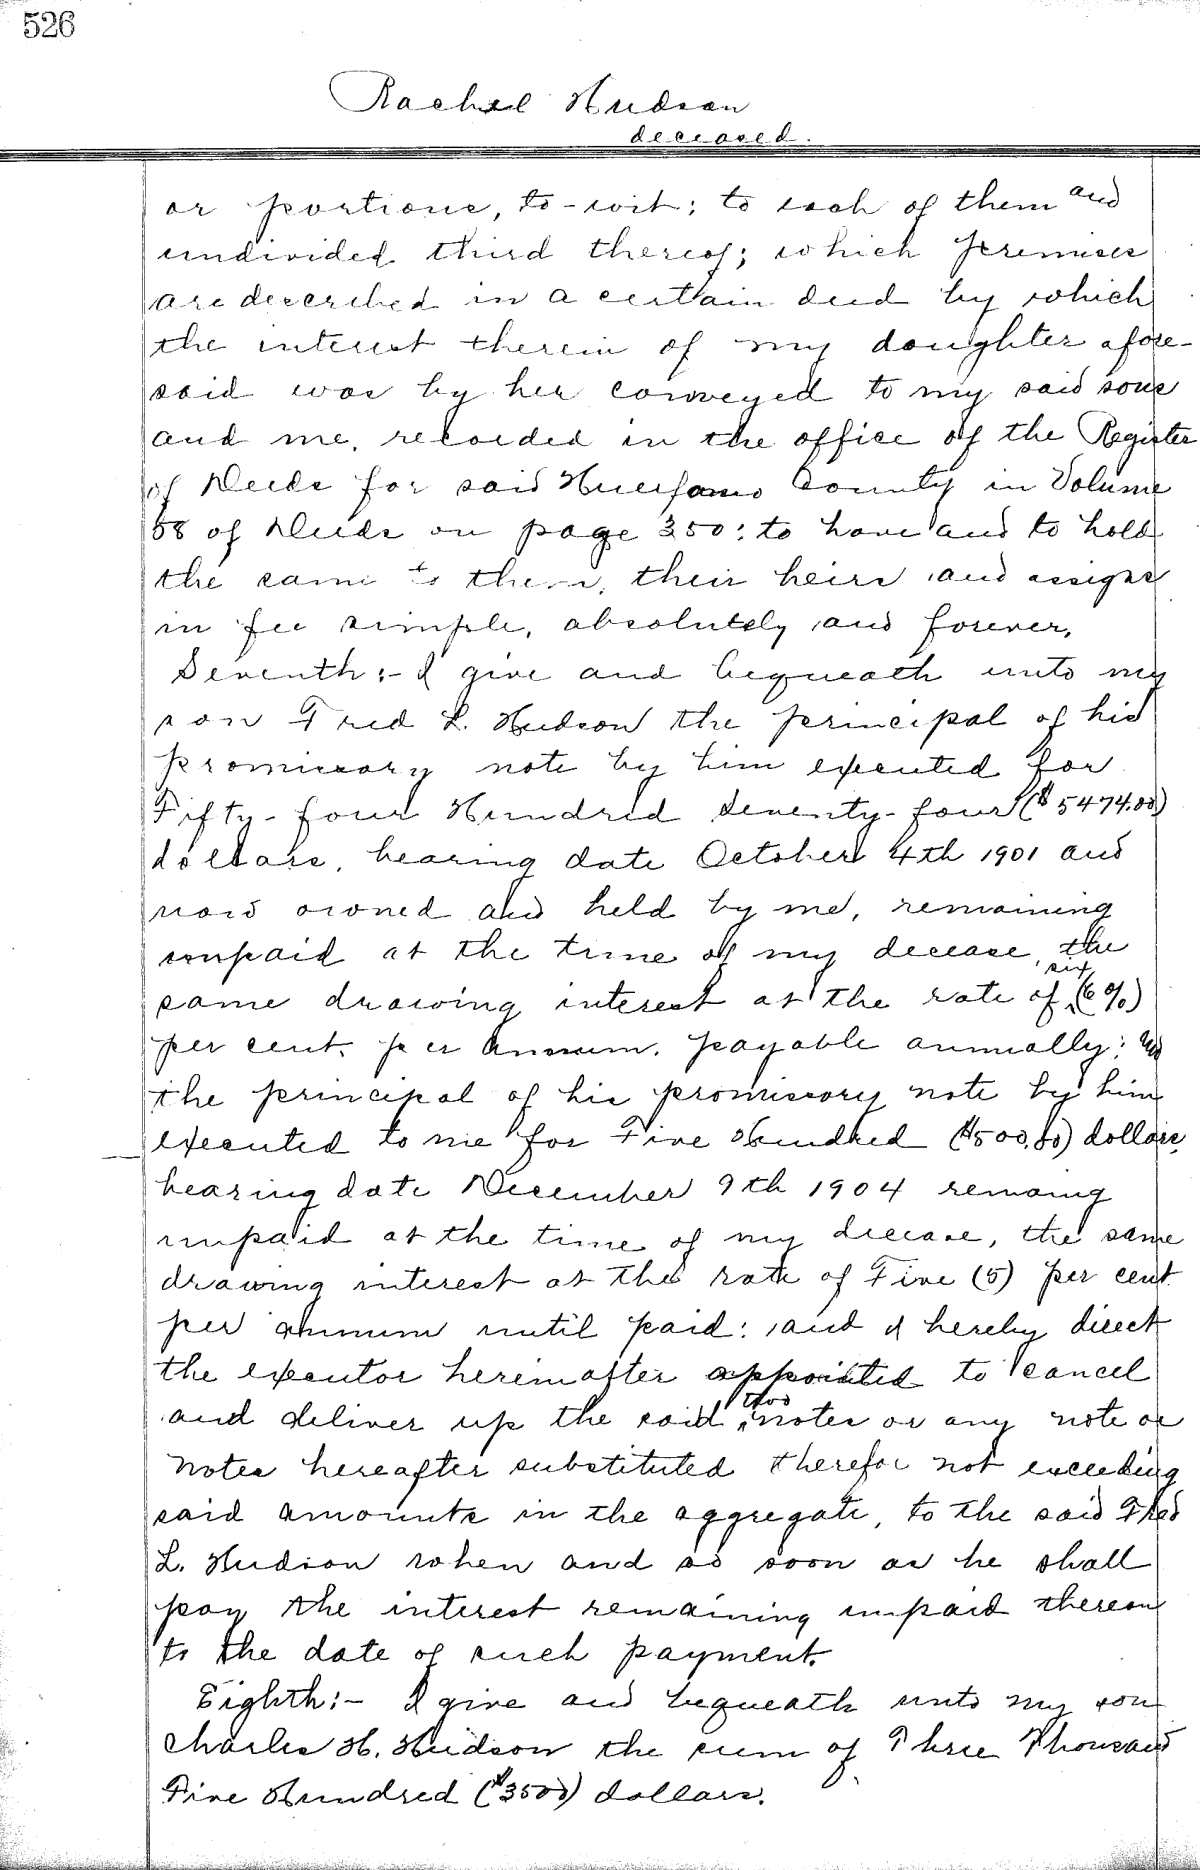 526
Rachel Hudson
deceased.
or portions, to-wit; to each of them and
undivided third thereof; which premises
are described in a certain deed by which
the interest therein of my daughter afore-
said was by her conveyed to my said sons
and me, recorded in the office of the Register
of Deeds for said Huerfano County in Volume
58 of Deeds on page 350: to have and to hold
the same to them, their heirs and assigns
in fee simple, absolutely and forever,
Seventh:- I give and bequeath unto my
son Fred L. Hudson the principal of his
promissory note by him executed for
Fifty-four Hundred Seventy-four ($5474.00)
dollars, bearing date October 4th 1901 and
now owned and held by me, remaining
unpaid at the time of my decease, the
same drawing interest at the rate of six (6%)
per cent. per annum. payable annually; and
the principal of his promissory note by him
executed to me for Five Hundred ($500.00) dollars,
bearing date December 9th 1904 remaing
unpaid at the time of my decease, the same
drawing interest at the rate of Five (5) per cent
per annum until paid: and I hereby direct
the executor hereinafter appointed to cancel
and deliver up the said two notes or any note or
notes hereafter substituted therefor not exceeding
said amounts in the aggregate, to the said Fred
L. Hudson when and as soon as he shall
pay the interest remaining unpaid thereon
to the date of such payment.
Eighth:- I give and bequeath unto my son
Charles H. Hudson the sum of Three Thousand
Five Hundred ($3500) dollars.